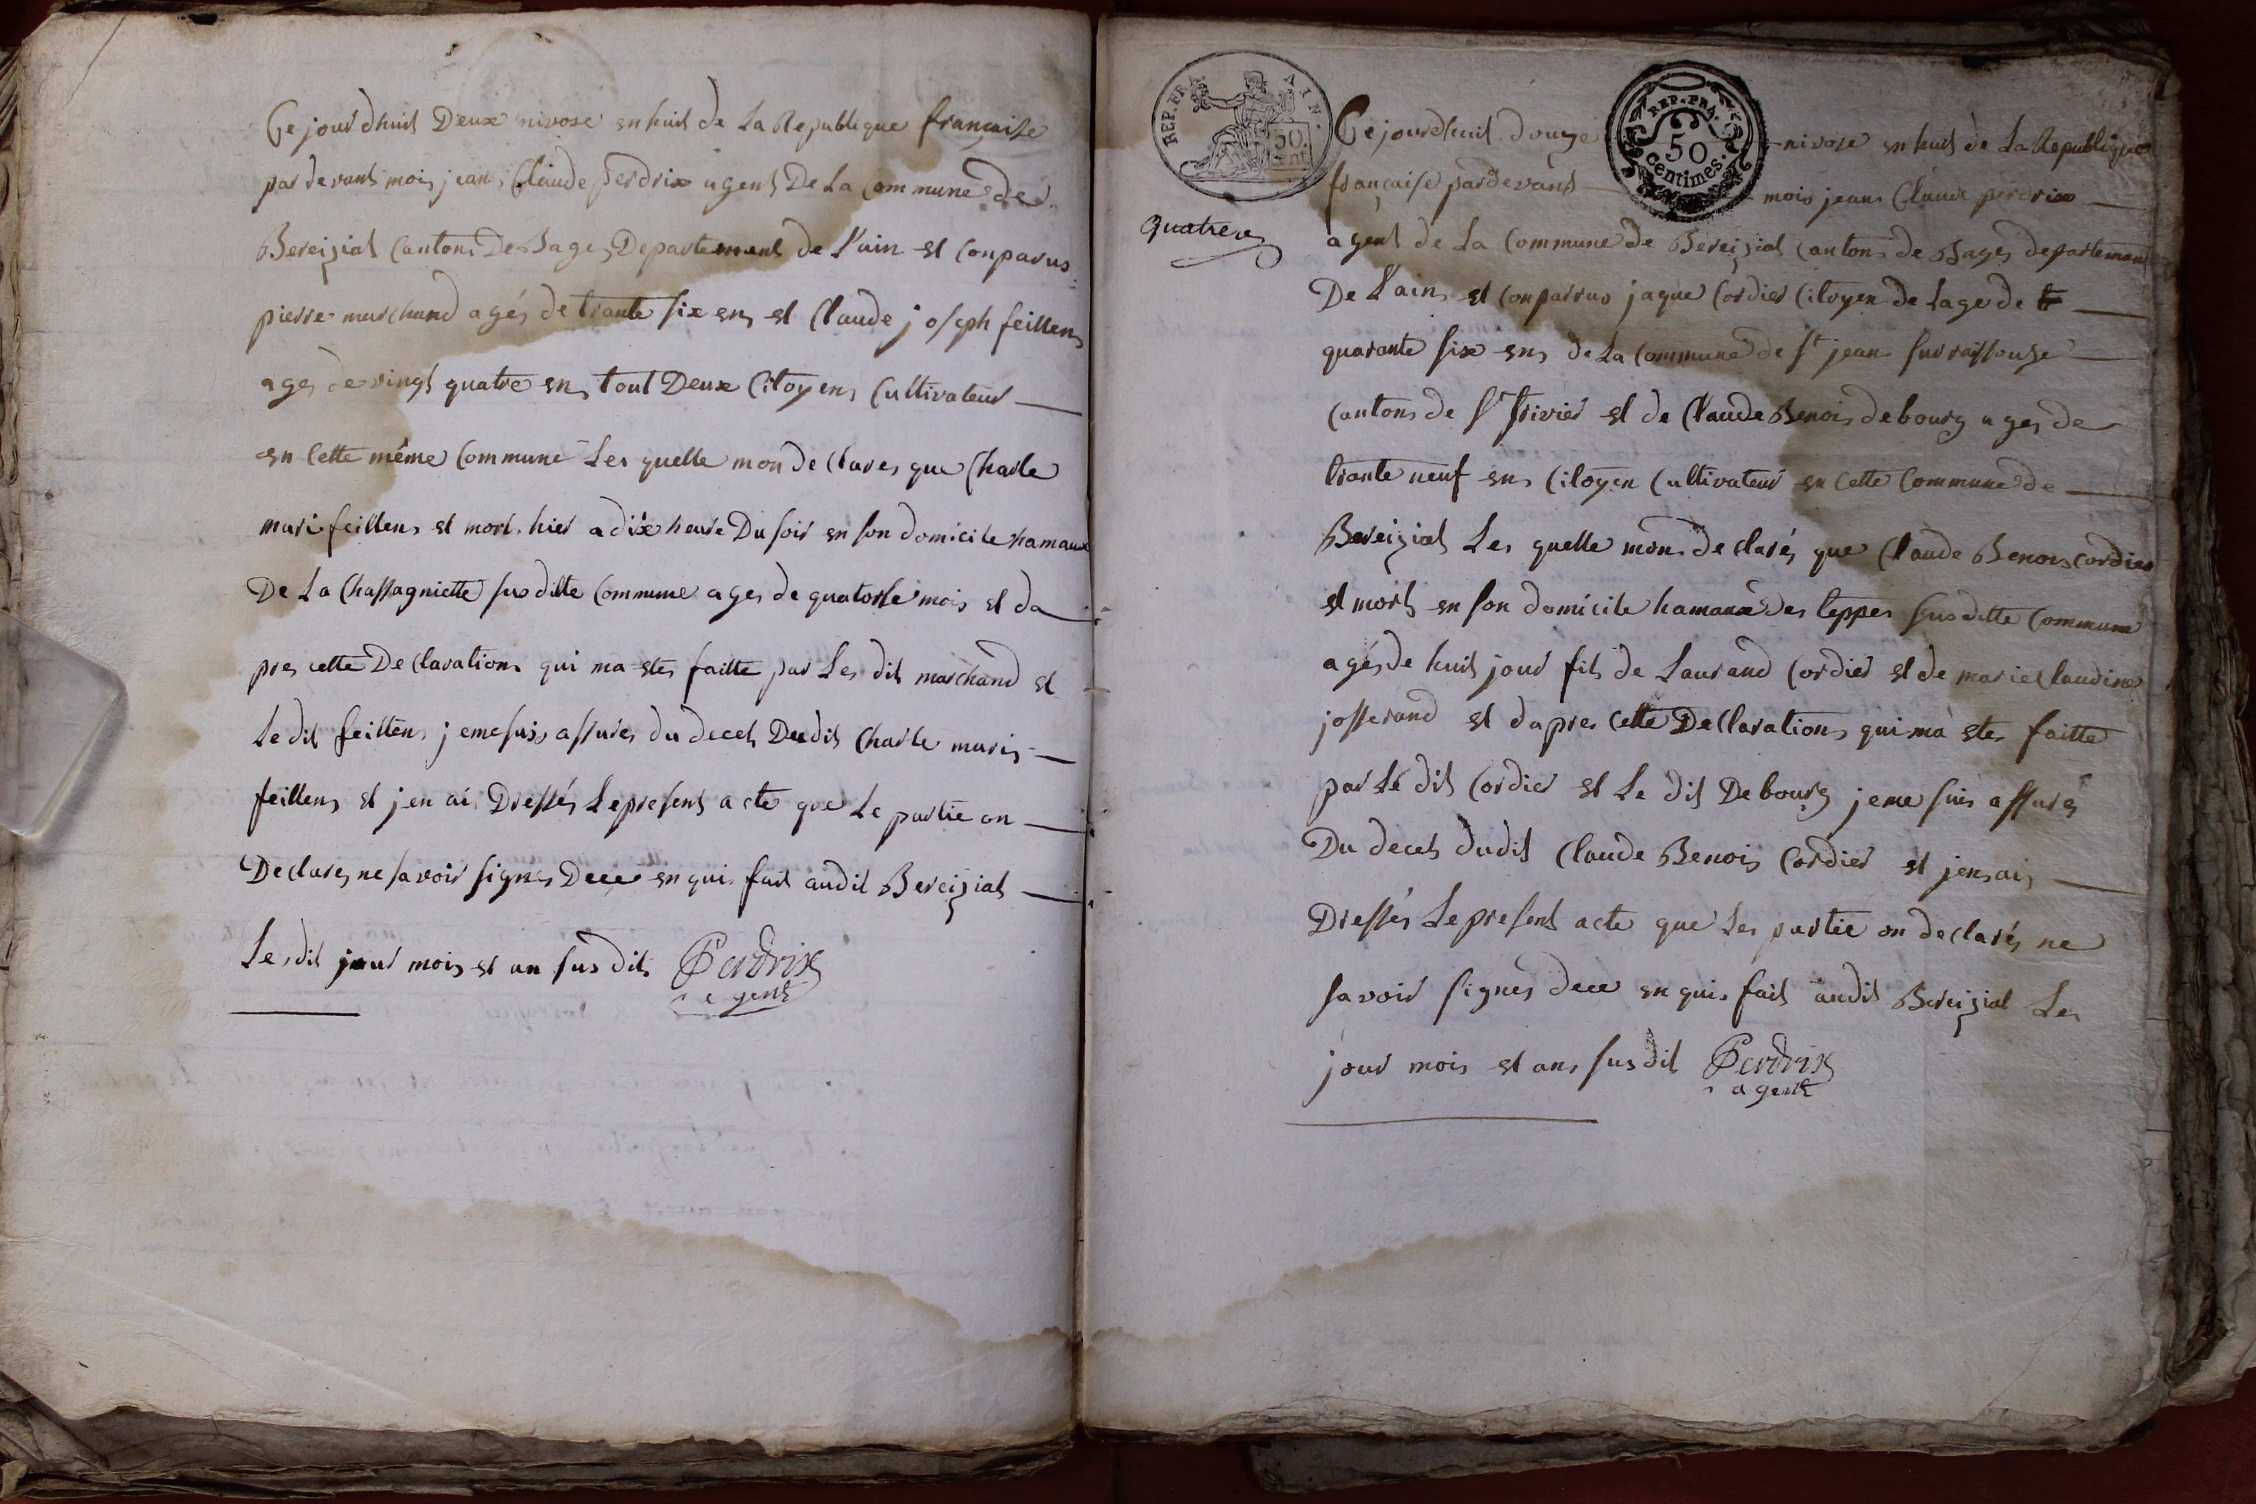 Ce jourdhuit Deux nivose en huit de La Republique française
par devant mois jean Claude perdrix agent De La Commune de
Bereiziat Canton De Bages Departement de L'ain et Conparus
pierre marchand agés de trante six ens et Claude joseph feillens
ages de vingt quatre ens tout Deux Citoyens Cultivateur
en Cette même Commune Les quelle mon de Clares que Charle
mari feillens et mort hier a dix heure Du soir en son domicile hamaux
De La Chassagniette susditte Commune ages de quatorse mois et da
pres cette De Claration qui ma etes faitte par Les dit marchand et
Le dit feillens jemesuis assures du decet Dudit Charle maris
feillens et jen ai Dressés Lepresent acte que Le partie on
De Clares ne savoir signes Dece en quis fait audit Bereiziat
Les dit jour mois et an sus dit Perdrix
agent
REP. FRA.
AIN.
50
cent.
REP. FRA.
50
Centimes.
quatre
Ce jourdhuit douze nivose en huit de La Republique
française pardevant mois jean Claude perdrix
agent de La Commune de Bereiziat Canton de Bages departement
De L'ain et Conparrus jaque Cordier Citoyen de Lage de
quarante six ens de La Commune de St jean sur raissouse
Canton de St trivier et de Claude Benois debourg ages de
trante neuf ens Citoyen Cultivateur en Cette Commune de
Bereiziat Les quelle mon de clarés que Claude Benois cordier
et mort en son domicile hamaux des teppes susditte Commune
agés de huit jour fils de Laurand Cordier et de marie Claudine
josserand et dapres Cette De Claration qui ma etes faitte
par Le dit Cordier et Le dit Debourg jeme suis assurés
Du decet dudit Claude Benois Cordier et jen ai
Dressés Lepresent acte que Les partie on declarés ne
savoir signes dece en quis fait audit Bereiziat Les
jour mois et ans sus dit Perdrix
agent